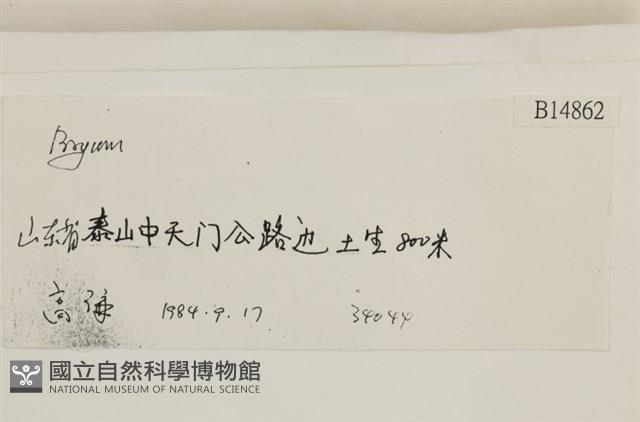 B14862
Bryum
山东省泰山中天门公路边 土生 800米
高 1984.9.17 34044
國立自然科學博物館
NATIONAL MUSEUM OF NATURAL SCIENCE